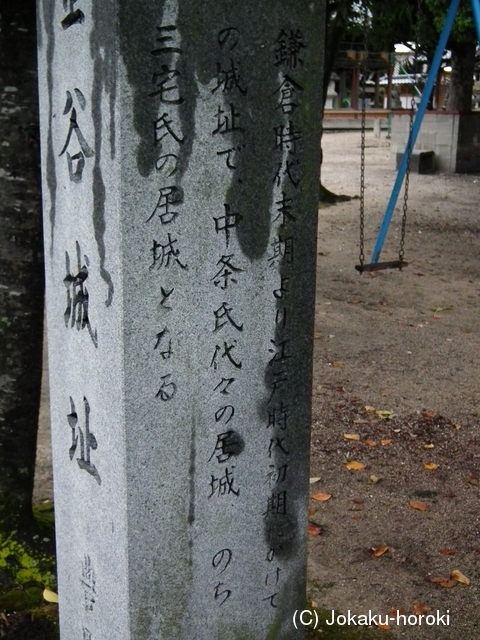 鎌倉時代末期より江戸時代初期にかけて
の城址で、中条氏代々の居城 のち
三宅氏の居城となる
谷城址
(C) Jokaku-horoki